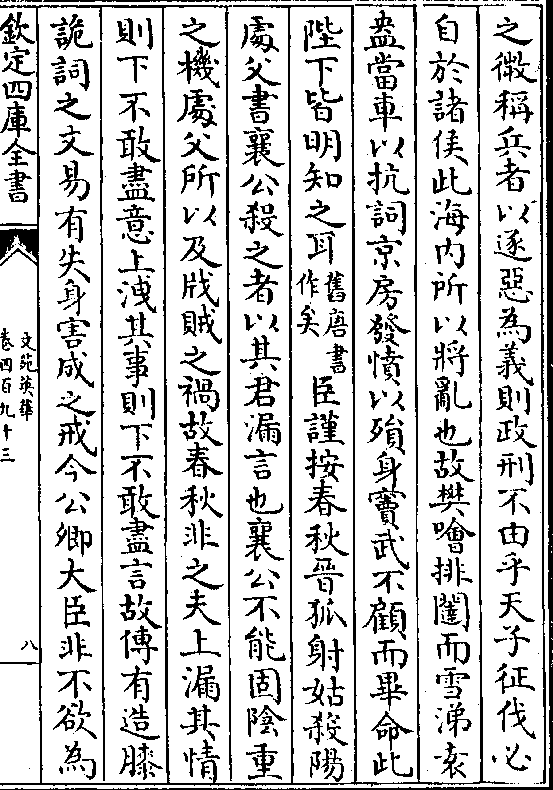 之微稱兵者以逐惡為義則政刑不由乎天子征伐必
自於諸侯此海内所以將亂也故樊噲排闥而雪涕袁
盎當車以抗詞京房發憤以殞身竇武不顧而畢命此
陛下皆明知之耳舊唐書作矣臣謹按春秋晉狐射姑殺陽
處父書襄公殺之者以其君漏言也襄公不能固陰重
之機處父所以及戕賊之禍故春秋非之夫上漏其情
則下不敢盡意上洩其事則下不敢盡言故傳有造膝
詭詞之文易有失身害成之戒今公卿大臣非不欲為
欽定四庫全書
文苑英華
卷四百九十三
八